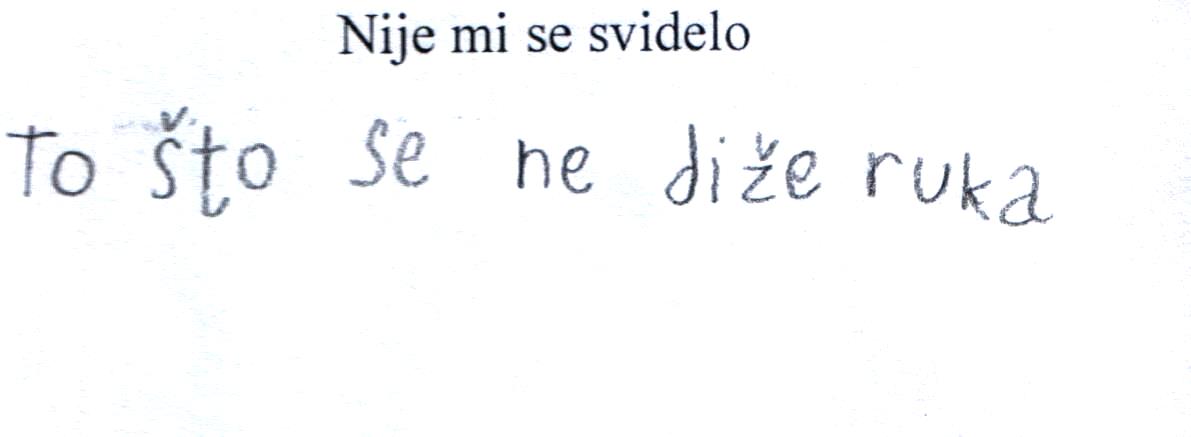 Nije mi se svidelo
To što se ne diže ruka